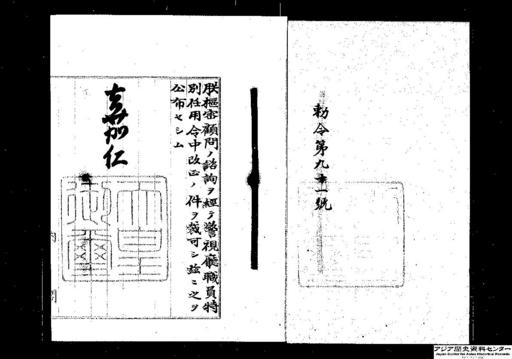 勅令第九十一號
朕樞密顧問ノ諮詢ヲ經テ警視廳職員特
別任用令中改正ノ件ヲ裁可シ茲ニ之ヲ
公布セシム
嘉仁
天皇御璽
内閣
アジア歴史資料センター
Japan Center for Asian Historical Records